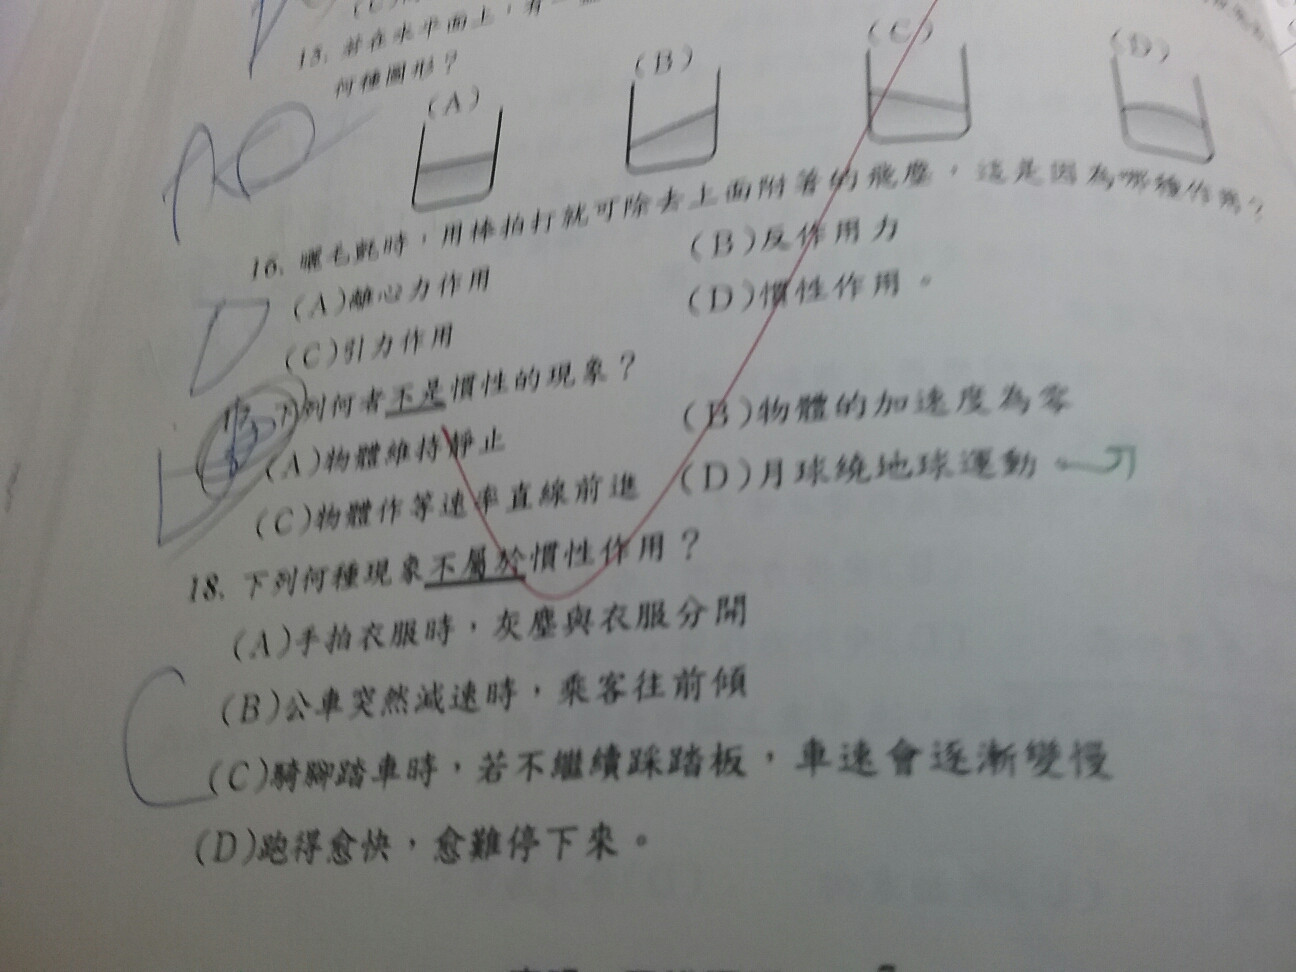 15.
何種圖形？
(A) (B) (C) (D)
16. 曬毛氈時，用棒拍打就可除去上面附著的飛塵，這是因為哪種作用？
(A)離心力作用 (B)反作用力
(C)引力作用 (D)慣性作用。
下列何者不是慣性的現象？
(A)物體維持靜止 (B)物體的加速度為零
(C)物體作等速率直線前進 (D)月球繞地球運動
18. 下列何種現象不屬於慣性作用？
(A)手拍衣服時，灰塵與衣服分開
(B)公車突然減速時，乘客往前傾
C
(C)騎腳踏車時，若不繼續踩踏板，車速會逐漸變慢
(D)跑得愈快，愈難停下來。